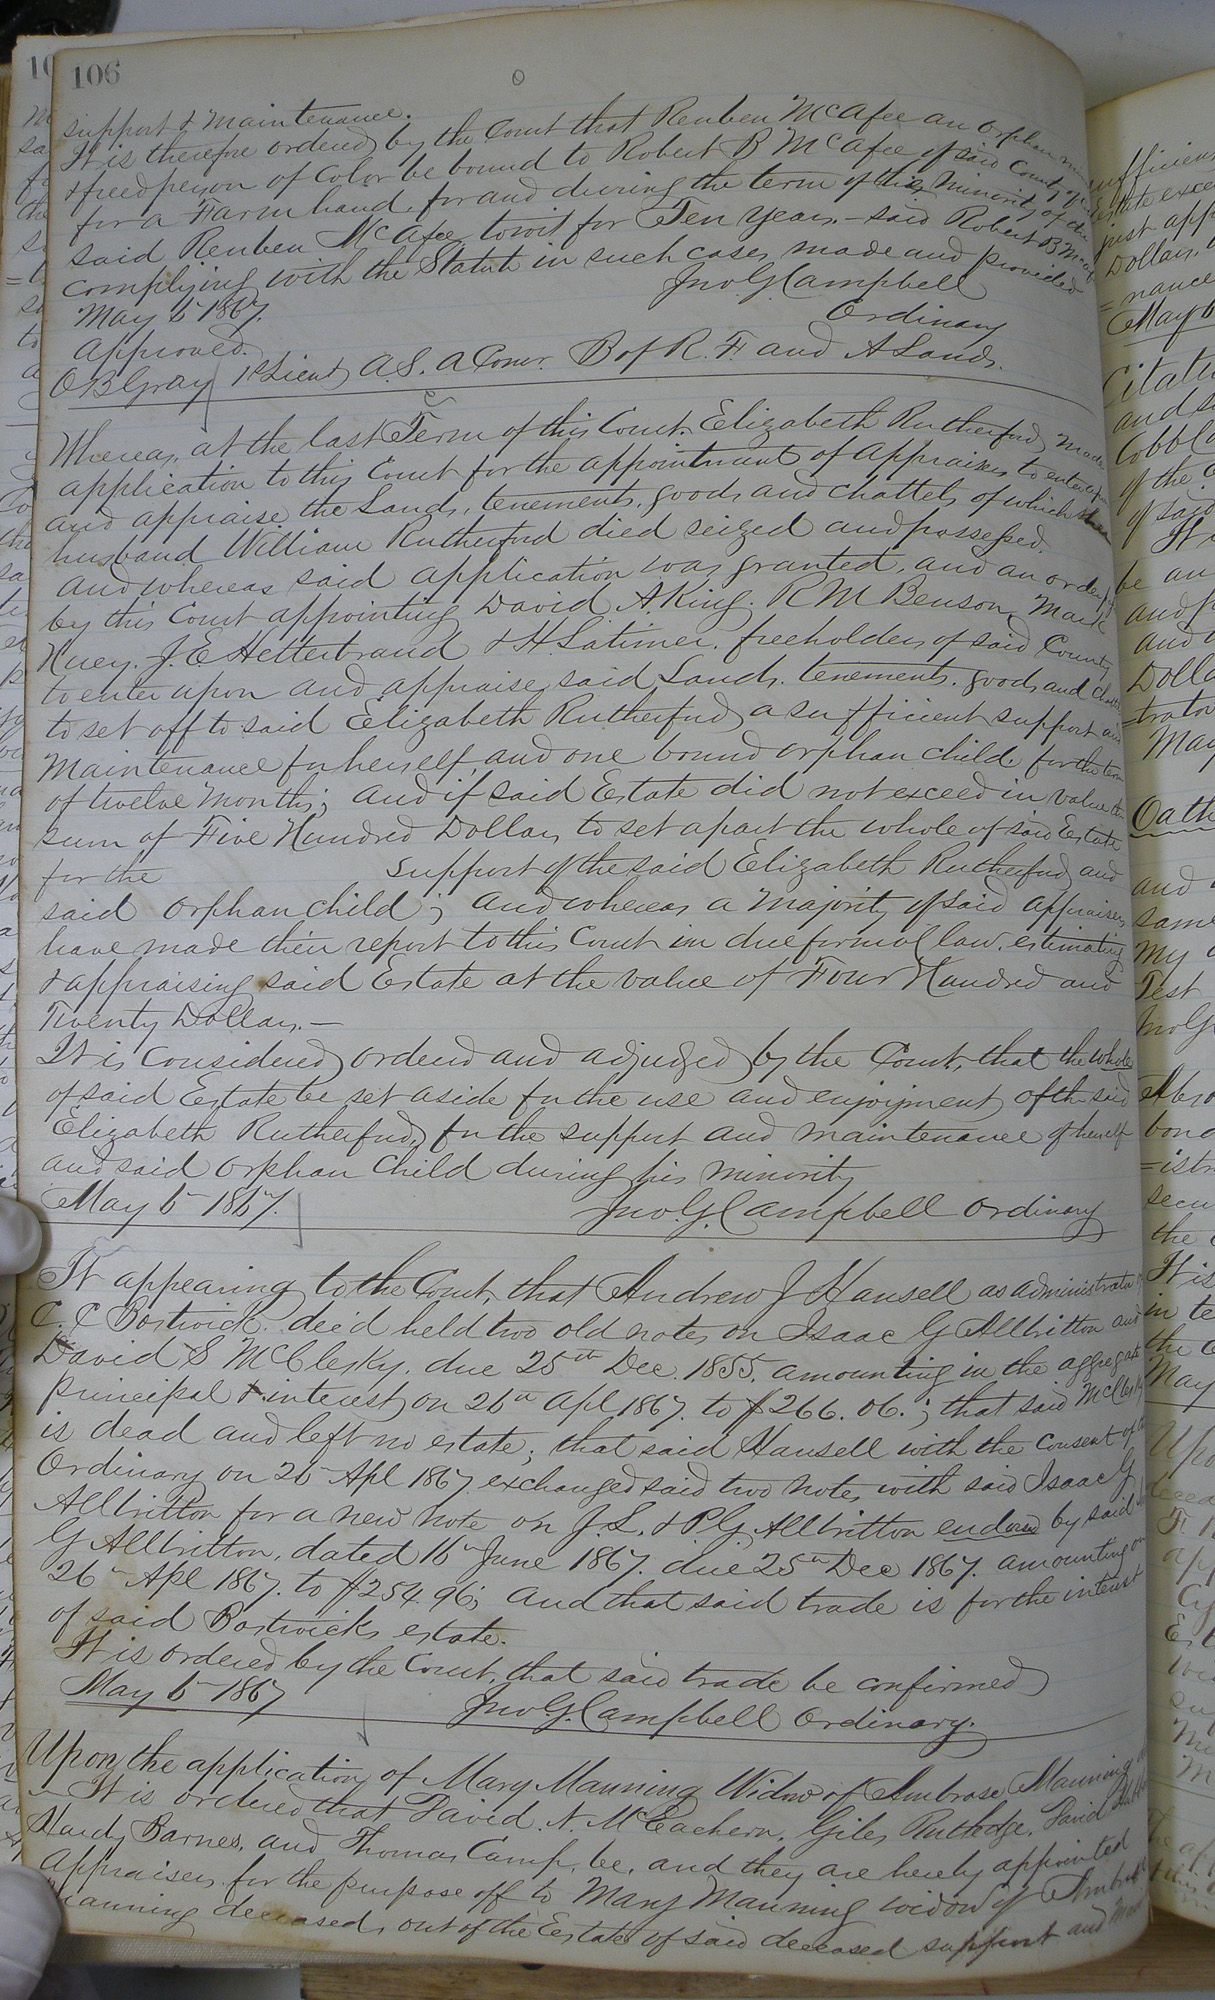 106
support & maintenance.
It is therefore ordered by the Court that Reuben McAfee an orphan
& freedperson of Color be bound to Robert B McAfee of said County
for a Farm hand, for and during the term of the minority of the
said Reuben McAfee towit for Ten years, - said Robert B McAfee
complying with the Statute in such cases made and provided
May 6 1867. Jno G Campbell
Approved. Ordinary
O B Gray 1st Lieut A. S. A Comr. B of R. F. and A Lands.
Whereas, at the last Term of this Court Elizabeth Rutherford made
application to this Court for the appointment of appraisers to enter upon
and appraise the Lands, tenements, goods and chattels of which her
husband William Rutherford died seized and possessed.
and whereas said application was granted, and an order
by this Court appointing David A. King. R M Benson, Mark
Huey. J. E Hettertrand & H Latimer, freeholders of said County
to enter upon and appraise said Lands. tenements. goods and
to set off to said Elizabeth Rutherford a sufficient support and
Maintenance for herself and one bound orphan child for the term
of twelve months; and if said Estate did not exceed in value the
sum of Five Hundred Dollars to set apart the whole of said Estate
for the support of the said Elizabeth Rutherford and
said orphan child; and whereas a majority of said appraisers
have made their report to this Court in due form of law, estimating
& appraising said Estate at the value of Four Hundred and
Twenty Dollars. -
It is considered ordered and adjudged by the Court, that the whole
of said Estate be set aside for the use and enjoyment of the said
Elizabeth Rutherford, for the support and maintenance of herself
and said orphan child during his minority
May 6 1867. Jno. G. Campbell Ordinary
It appearing to the Court, that Andrew J Hansell as administrator of
C. C Bostwick dec'd held two old notes on Isaac G Allbritton and
David S McClesky, due 25th Dec. 1855, amounting in the aggregate
principal & interest on 26th Apl 1867. to $266.06.; that said McClesky
is dead and left no estate; that said Hansell with the consent of the
Ordinary on 26 Apl 1867 exchanged said two notes with said Isaac G
Allbritton for a new note on J. L. & P G Allbritton endorsed by said
G Allbritton, dated 16th June 1867. due 25th Dec 1867. amounting on
26th Apl 1867. to $254.96; and that said trade is for the interest
of said Bostwicks estate.
It is ordered by the Court, that said trade be confirmed
May 6 1867 Jno G. Campbell Ordinary.
Upon the application of Mary Manning Widow of Ambrose Manning
It is ordered that David. N. McEachern. Giles Rutledge. David
Hardy Barnes, and Thomas Camp, be, and they are hereby appointed
Appraisers for the purpose off to Mary Manning widow of
Manning deceased, out of the Estate of said deceased support and